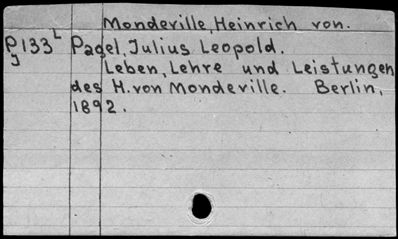 Mondeville, Heinrich von.
P133 L Pagel, Julius Leopold.
J
Leben, Lehre und Leistungen
des H. von Mondeville. Berlin,
1892.